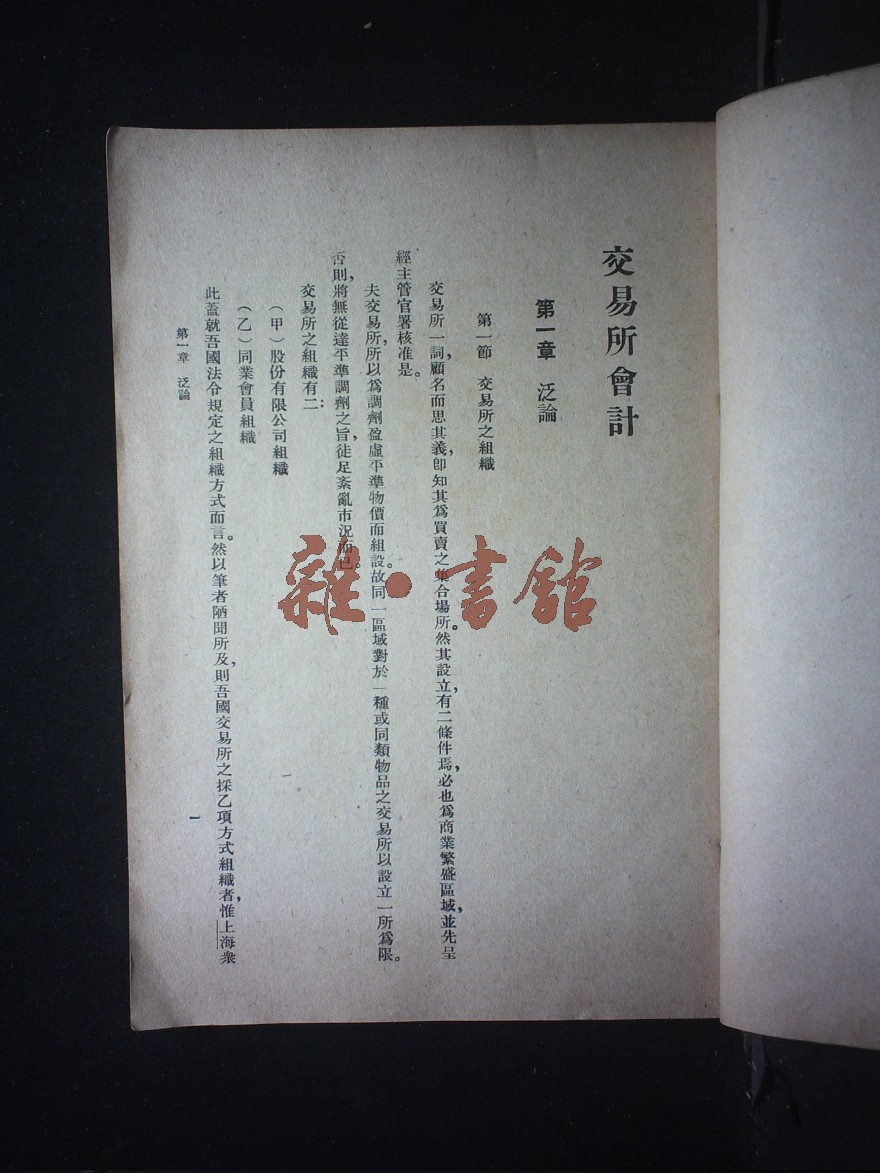 交易所會計
第一章 泛論
第一節 交易所之組織
交易所一詞，顧名而思其義，卽知其爲買賣之集合場所。然其設立，有二條件焉，必也爲商業繁盛區域，並先呈
經主管官署核准是。
夫交易所，所以爲調劑盈虛平準物價而組設。故同一區域對於一種或同類物品之交易所以設立一所爲限。
否則，將無從達平準調劑之旨，徒足紊亂市況而已。
交易所之組織有二：
（甲）股份有限公司組織
（乙）同業會員組織
此蓋就吾國法令規定之組織方式而言。然以筆者陋聞所及，則吾國交易所之採乙項方式組織者，惟上海衆
第一章 泛論
一
雜·書館